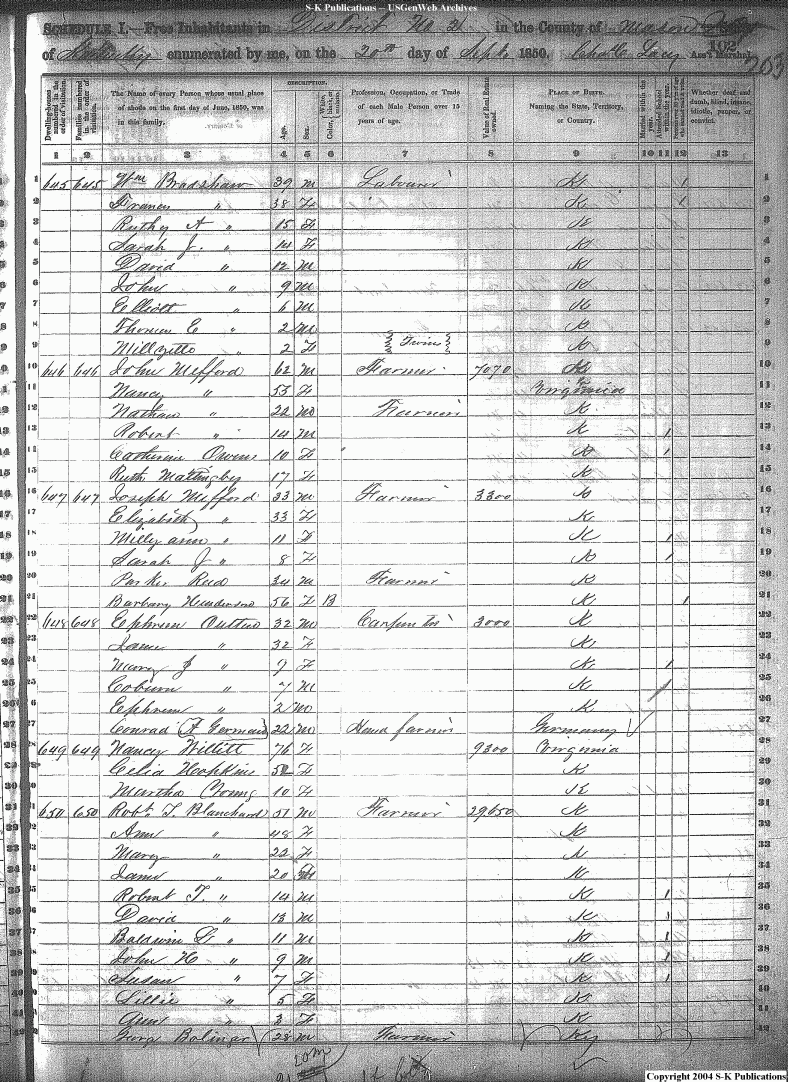 S-K Publications – USGenWeb Archives
SCHEDULE I.—Free Inhabitants in District No 2 in the County of Mason
of enumerated by me, on the 20th day of Sept. 1850. Lacy Ass't Marshal.
102 203
Dwelling-houses numbered in the order of visitation.
Families numbered in the order of visitation.
The Name of every Person whose usual place of abode on the first day of June, 1850, was in this family.
DESCRIPTION.
Age.
Sex.
Color,
Profession, Occupation, or Trade of each Male Person over 15 years of age.
Value of Real Estate owned.
PLACE OF BIRTH. Naming the State, Territory, or Country.
Married within the year.
Whether deaf and dumb, blind, insane, idiotic, pauper, or convict.
1 2 3 4 5 6 7 8 9 10 11 12 13
1 645 645 Wm Bradshaw 39 m Labourer K 1
2 Frances " 38 F K 1
3 Ruthy A " 15 F K
4 Sarah J. " 14 F K
5 David " 12 m K
6 John " 9 m K
7 Elliott " 6 m K
8 Thomas E " 2 m K
9 " 2 F Twins K
10 646 646 John Mefford 62 m Farmer 7070 K
11 Nancy " 53 F Virginia
12 Nathan " 22 m Farmer K
13 Robert " 14 m K 1
14 Catherine Owens 10 F K 1
15 Ruth Mattingby 17 F K
16 647 647 Joseph Mefford 33 m Farmer 3300 K
17 Elizabeth " 33 F K
18 Milly ann " 11 F K 1
19 Sarah J " 8 F K 1
20 Parker Reed 34 m Farmer K
21 Barbary Henderson 56 F B K 1
22 648 648 Ephrem 32 m Carpenter 3000 K
23 Jane " 32 F K
24 Mary J " 9 F K 1
25 Coburn " 7 m K 1
26 Ephrem " 2 m K
27 Conrad (A German) 22 m farmer Germany
28 649 649 Nancy Willitt 76 F 9300 Virginia
29 Celia Hopkins 52 F K
30 Martha Young 10 F K
31 650 650 Robt. T. Blanchard 51 m Farmer 29,650 K
32 Ann " 48 F K
33 Mary " 22 F K
34 Jane " 20 F K
35 Robert T. " 14 m K 1
36 David " 13 m K 1
37 Baldwin G " 11 m K 1
38 John H " 9 m K 1
39 Susan " 7 F K 1
40 Lillie " 5 F K
41 " 3 F K
42 28 m Farmer Ky
20 m
Copyright 2004 S-K Publications